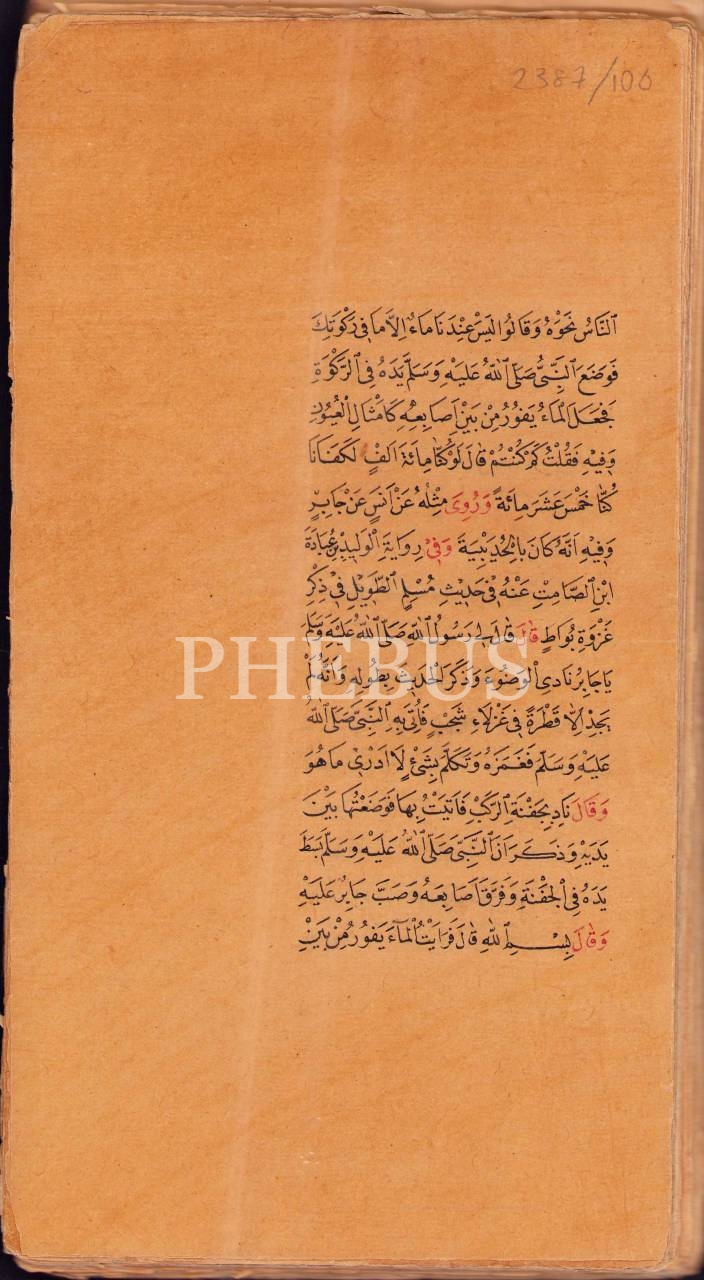 2387/106
اَلنَّاسُ نَحْوَهُ وَقَالُوا لَيْسَ عِنْدَنَا مَاءٌ اِلَّا مَا فِي رَكْوَتِكَ
فَوَضَعَ اَلنَّبِيُّ صَلَّى اَللهُ عَلَيْهِ وَسَلَّمَ يَدَهُ فِي اَلرَّكْوَةِ
فَجَعَلَ الْمَاءُ يَفُورُ مِنْ بَيْنِ اَصَابِعِهِ كَاَمْثَالِ الْعُيُونِ
وَفِيهِ فَقُلْتُ كَمْ كُنْتُمْ قَالَ لَوْ كُنَّا مِائَةَ اَلْفٍ لَكَفَانَا
كُنَّا خَمْسَ عَشَرَ مِائَةً وَرُوِيَ مِثْلُهُ عَنْ اَنَسٍ عَنْ جَابِرٍ
وَفِيهِ اَنَّهُ كَانَ بِالْحُدَيْبِيَةِ وَفِي رِوَايَةِ الْوَلِيدِ بْنِ عُبَادَةَ
ابْنِ اَلصَّامِتِ عَنْهُ فِي حَدِيثِ مُسْلِمٍ اَلطَّوِيلِ فِي ذِكْرِ
غَزْوَةِ بُوَاطٍ قَالَ قَالَ لِي رَسُولُ اَللهِ صَلَّى اَللهُ عَلَيْهِ وَسَلَّمَ
يَا جَابِرُ نَادِي الْوَضُوءَ وَذَكَرَ الْحَدِيثَ بِطُولِهِ وَاَنَّهُ لَمْ
يَجِدْ اِلَّا قَطْرَةً فِي عَزْلَاءِ شَجْبٍ فَاُتِيَ بِهِ اَلنَّبِيُّ صَلَّى اَللهُ
عَلَيْهِ وَسَلَّمَ فَغَمَزَهُ وَتَكَلَّمَ بِشَيْءٍ لَا اَدْرِي مَا هُوَ
وَقَالَ نَادِ بِجَفْنَةِ اَلرَّكْبِ فَاَتَيْتُ بِهَا فَوَضَعْتُهَا بَيْنَ
يَدَيْهِ وَذَكَرَ اَنَّ اَلنَّبِيَّ صَلَّى اَللهُ عَلَيْهِ وَسَلَّمَ بَسَطَ
يَدَهُ فِي الْجَفْنَةِ وَفَرَّقَ اَصَابِعَهُ وَصَبَّ جَابِرٌ عَلَيْهِ
وَقَالَ بِسْمِ اَللهِ قَالَ فَرَاَيْتُ الْمَآءَ يَفُورُ مِنْ بَيْنِ
PHEBUS